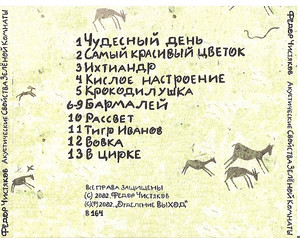 Федор Чистяков Акустические Свойства Зелёной Комнаты
1 Чудесный день
2 Самый красивый цветок
3 Ихтиандр
4 Кислое настроение
5 Крокодилушка
6-9 Бармалей
10 Рассвет
11 Тигр Иванов
12 Вовка
13 В цирке
Все права защищены
(C) 2002, Федор Чистяков
(C)(P)2002, "Отделение Выход"
В 164
Федор Чистяков Акустические Свойства Зелёной Комнаты